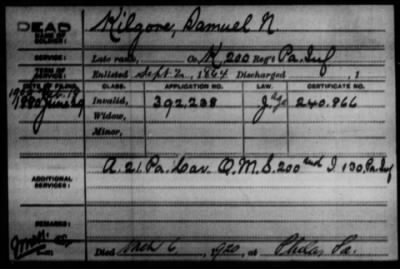 DEAD Kilgore, Samuel N
NAME OF SOLDIER:
SERVICE: Late rank, Co. K, 200 Reg't Pa. Inf
TERM OF SERVICE: Enlisted Sept 2, 1864 Discharged , 1
DATE OF FILING. CLASS. APPLICATION NO. LAW. CERTIFICATE NO.
1880 June 29 Invalid, 392,238 240,866
Widow,
Minor,
ADDITIONAL SERVICES: A. 21 Pa. Cav. Q. M. S. 200 and I. 130 Pa. Inf
REMARKS:
Died 6, 1920, at Phila, Pa.